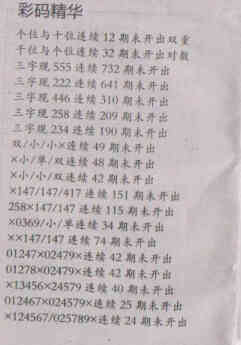 彩码精华
个位与十位连续 12 期未开出双重
千位与个位连续 32 期未开出对数
三字现 555 连续 732 期未开出
三字现 222 连续 641 期未开出
三字现 446 连续 310 期未开出
三字现 258 连续 209 期未开出
三字现 234 连续 190 期未开出
双/小/小×连续 49 期未开出
×小/单/双连续 48 期未开出
×小/小/双连续 42 期未开出
×147/147/417 连续 151 期未开出
258×147/147 连续 115 期未开出
×0369/小/单连续 34 期未开出
××147/147 连续 74 期未开出
01247×02479×连续 42 期未开出
01278×02479×连续 42 期未开出
×13456×24579 连续 40 期未开出
012467×024579×连续 25 期未开出
×124567/025789×连续 24 期未开出